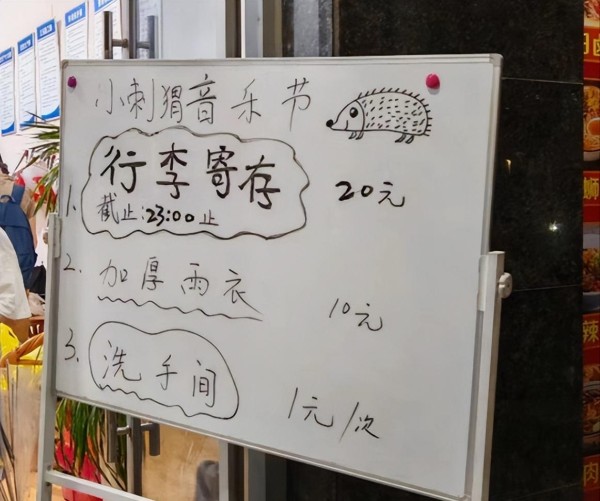 小刺猬音乐节
1. 行李寄存 20元
截止:23:00止
2. 加厚雨衣 10元
3. 洗手间 1元/次
辣
肉